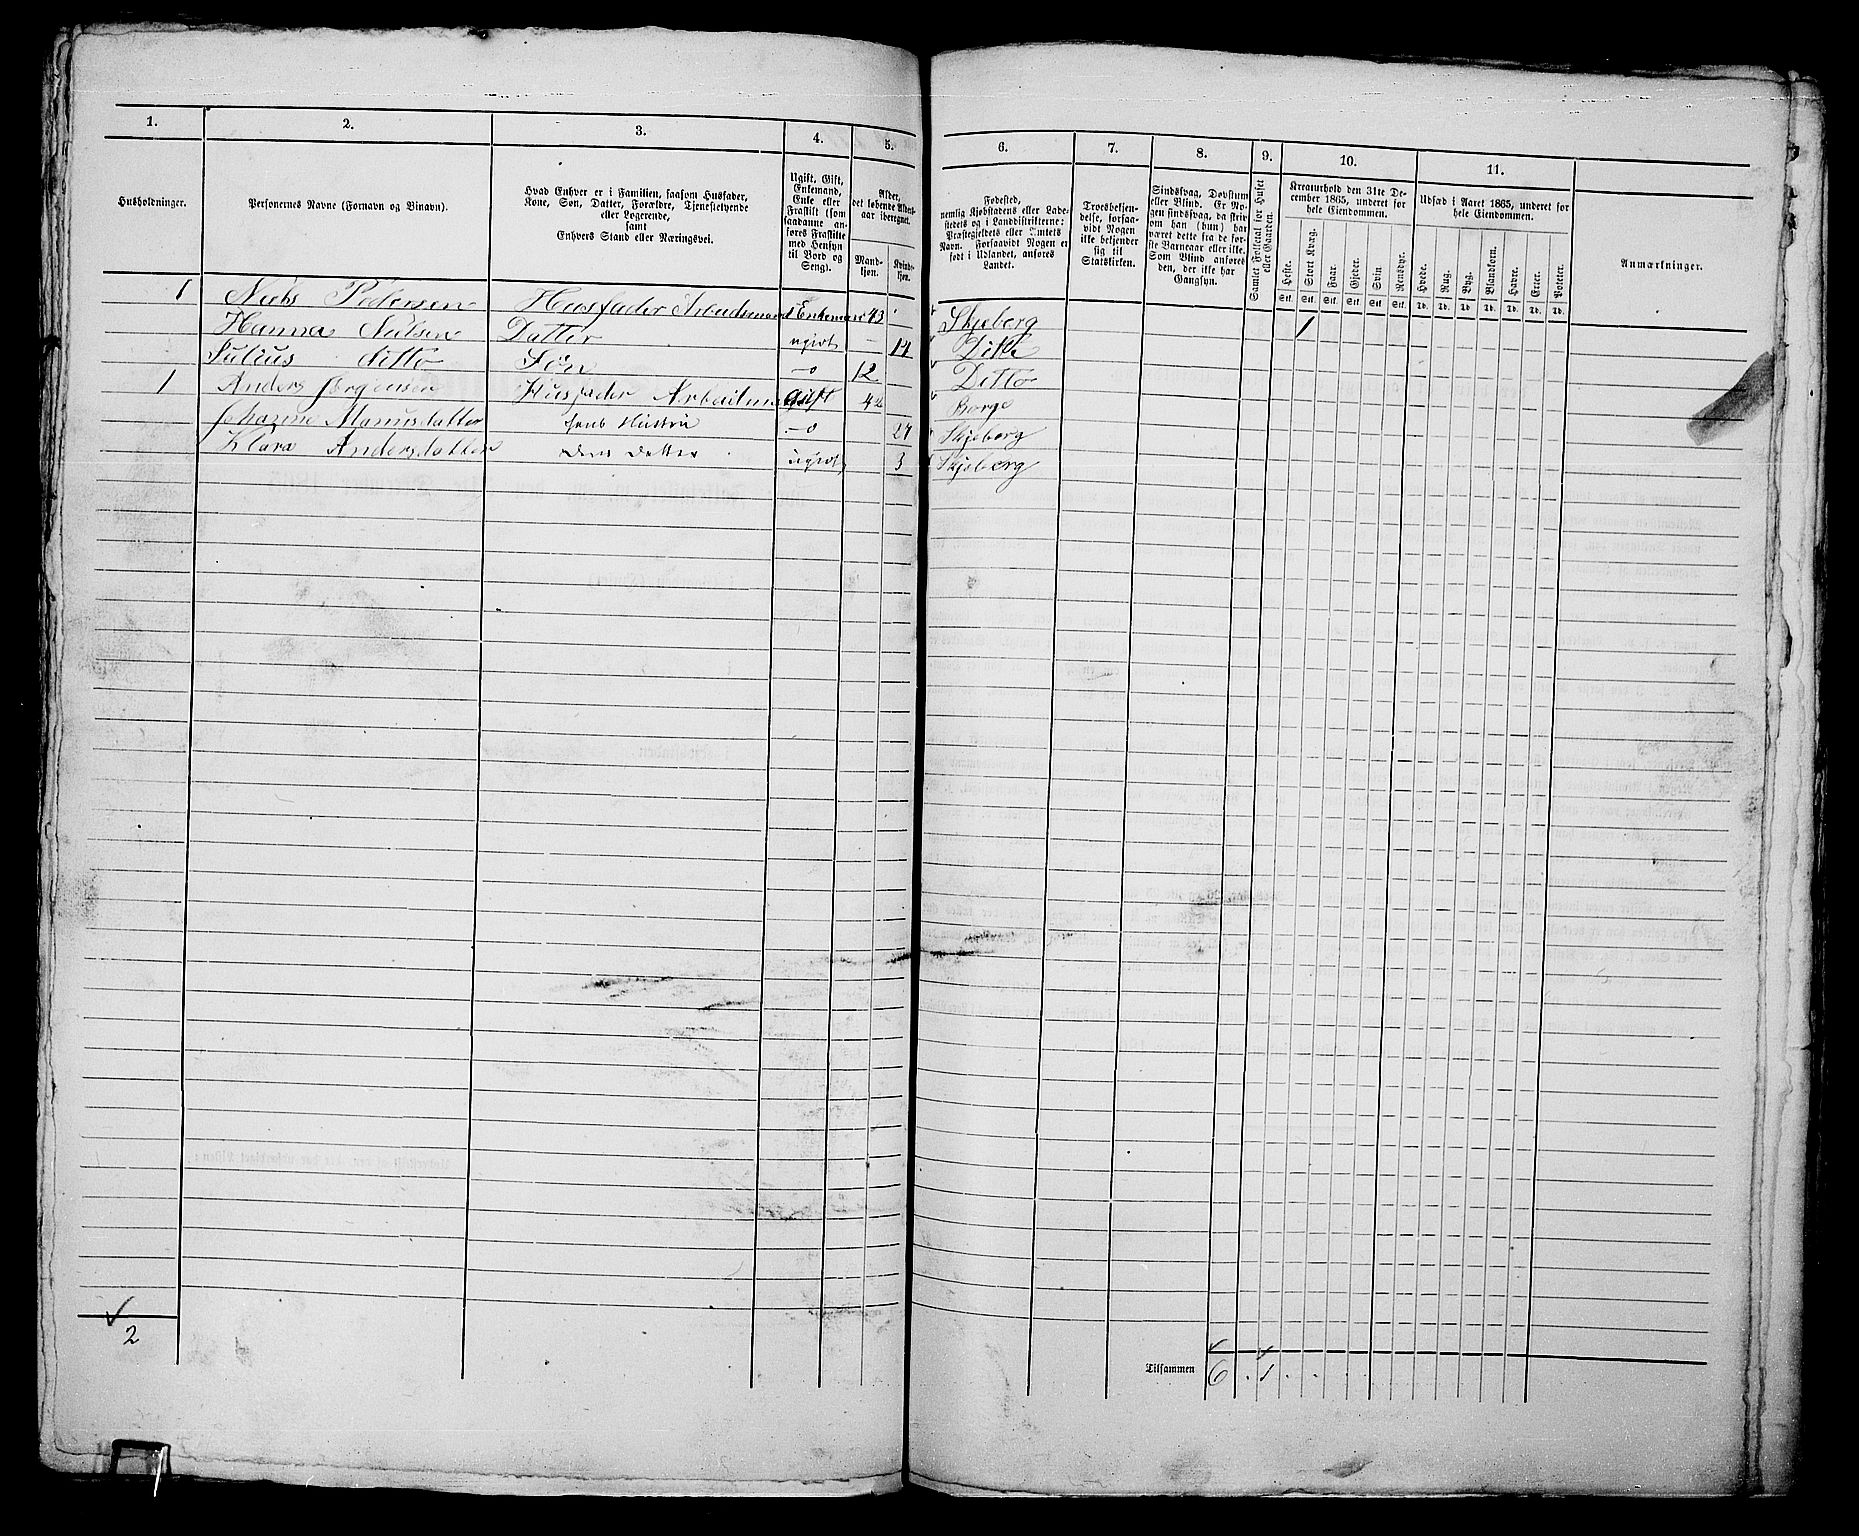 1.
2.
3.
4.
5.
6.
7.
8.
9.
10.
11.
Husholdninger.
Personernes Navne (Fornavn og Binavn).
Hvad Enhver er i Familien, saasom Husfader,
Kone, Søn, Datter, Forældre, Tjenestetyende
eller Logerende,
samt
Enhvers Stand eller Næringsvei.
Ugift, Gift,
Enkemand,
Enke eller
Fraskilt (som
saadanne an-
føres Fraskilte
med Hensyn
til Bord og
Seng).
Alder,
det løbende Alders-
aar iberegnet.
Mand-
kjøn.
Kvinde-
kjøn.
Fødested,
nemlig Kjøbstadens eller Lade-
stedets og i Landdistrikterne:
Præstegjeldets eller Amtets
Navn. Forsaavidt Nogen er
født i Udlandet, anføres
Landet.
Troesbekjen-
delse, forsaa-
vidt Nogen
ikke bekjender
sig til
Statskirken.
Sindssvag, Døvstum
eller Blind. Er No-
gen sindssvag, da skriv
om han (hun) har
været dette fra de før-
ste Barneaar eller ikke.
Som Blind anføres
den, der ikke har
Gangsyn.
Samlet Folketal for Huset
eller Gaarden.
Kreaturhold den 31te De-
cember 1865, underet for
hele Eiendommen.
Heste. Stort Kvæg. Faar. Gjeder. Svin Rensdyr.
Stk. Stk. Stk. Stk. Stk. Stk.
Udsæd i Aaret 1865, underet for
hele Eiendommen.
Hvede. Rug. Byg. Blandkorn. Havre. Erter. Poteter.
Td. Td. Td. Td. Td. Td. Td.
Anmærkninger.
1 Niels Pedersen Husfader Arbeidsmand Enkemand 43 Skjeberg 1
Hanna Nilsen Datter ugivt – 14 Ditto
Julius ditto Søn –o 12 Ditto
1 Anders Jørgensen Husfader Arbeidsm gift 42 Borge
Mariusdatter hans Hustru –o 27 Skjeberg
Klara Andersdatter Deres Datter ugivt 3 Skjeberg
2
Tilsammen 6 . 1 . . .